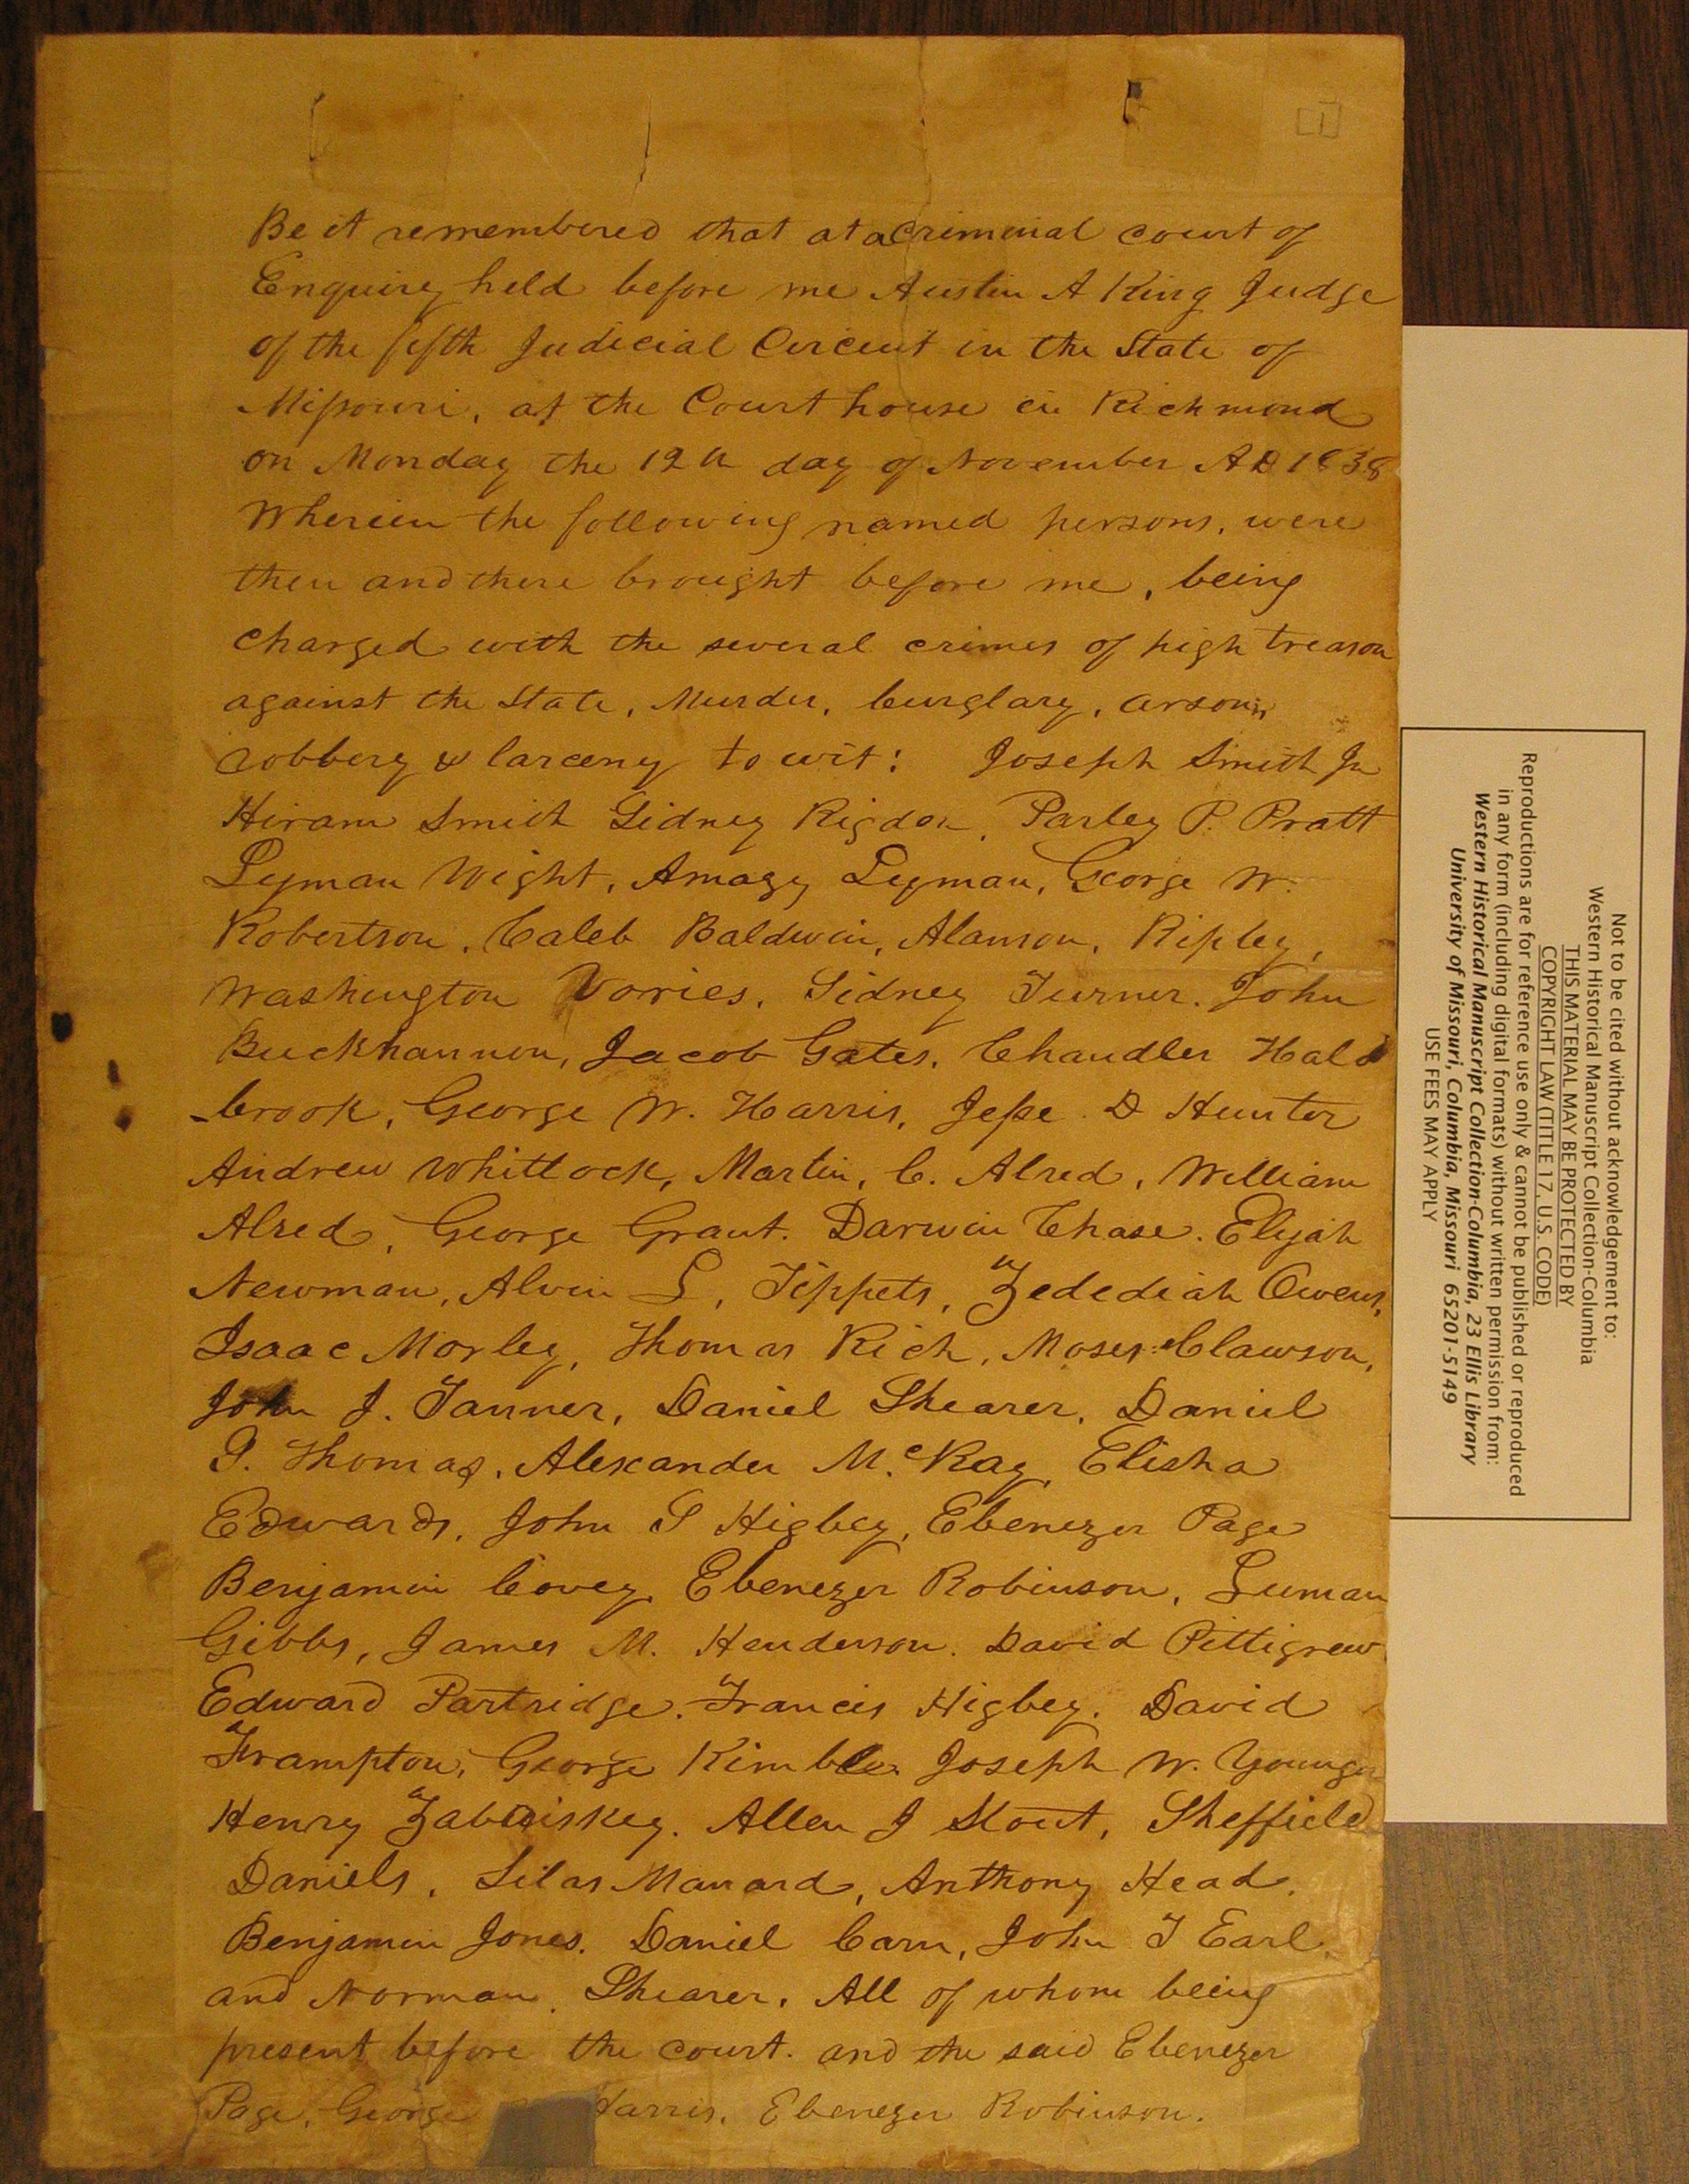 1
Be it remembered that at a Criminal court of
Enquirey held before me Austin A King Judge
of the fifth Judicial Circuit in the State of
Missouri, at the Court house in Richmond
on Monday the 12th day of November AD 1838
Wherein the following named persons, were
then and there brought before me, being
charged with the several crimes of high treason
against the State, Murder, burglary, arson,
robbery & larceny to wit: Joseph Smith Jr
Hiram Smith Sidney Rigdon, Parley P. Pratt
Lyman Wight, Amazy Lyman, George W.
Robertson, Caleb Baldwin, Alanson, Ripley,
Washington Vories, Sidney Turner. John
Buckhannon, Jacob Gates, Chandler Hal
brook, George W. Harris, Jesse D Hunter
Andrew Whitlock, Martin, C. Alred, William
Alred, George Grant. Darwin Chase. Elijah
Newman, Alvin G, Tippets, Zedediah Owens,
Isaac Morley, Thomas Rich, Moses Clawson,
John J. Tanner, Daniel Shearer, Daniel
S. Thomas, Alexander McRay Elisha
Edwards, John S Higbey, Ebenezer Page
Benjamin Covey, Ebenezer Robinson, Luman
Gibbs, James M. Henderson. David Pittigrew
Edward Partridge. Francis Higbey. David
Frampton, George Kimble Joseph W. Younger
Henry Zabriskey. Allen J Stout, Sheffield
Daniels, Silas Manard, Anthony Head,
Benjamin Jones. Daniel Carn, John T Earl
and Norman Shearer. All of whom being
present before the court. and the said Ebenezer
Page, George Harris, Ebenezer Robinson.
Not to be cited without acknowledgement to:
Western Historical Manuscript Collection-Columbia
THIS MATERIAL MAY BE PROTECTED BY
COPYRIGHT LAW (TITLE 17, U.S. CODE)
Reproductions are for reference use only & cannot be published or reproduced
in any form (including digital formats) without written permission from:
Western Historical Manuscript Collection-Columbia, 23 Ellis Library
University of Missouri, Columbia, Missouri 65201-5149
USE FEES MAY APPLY